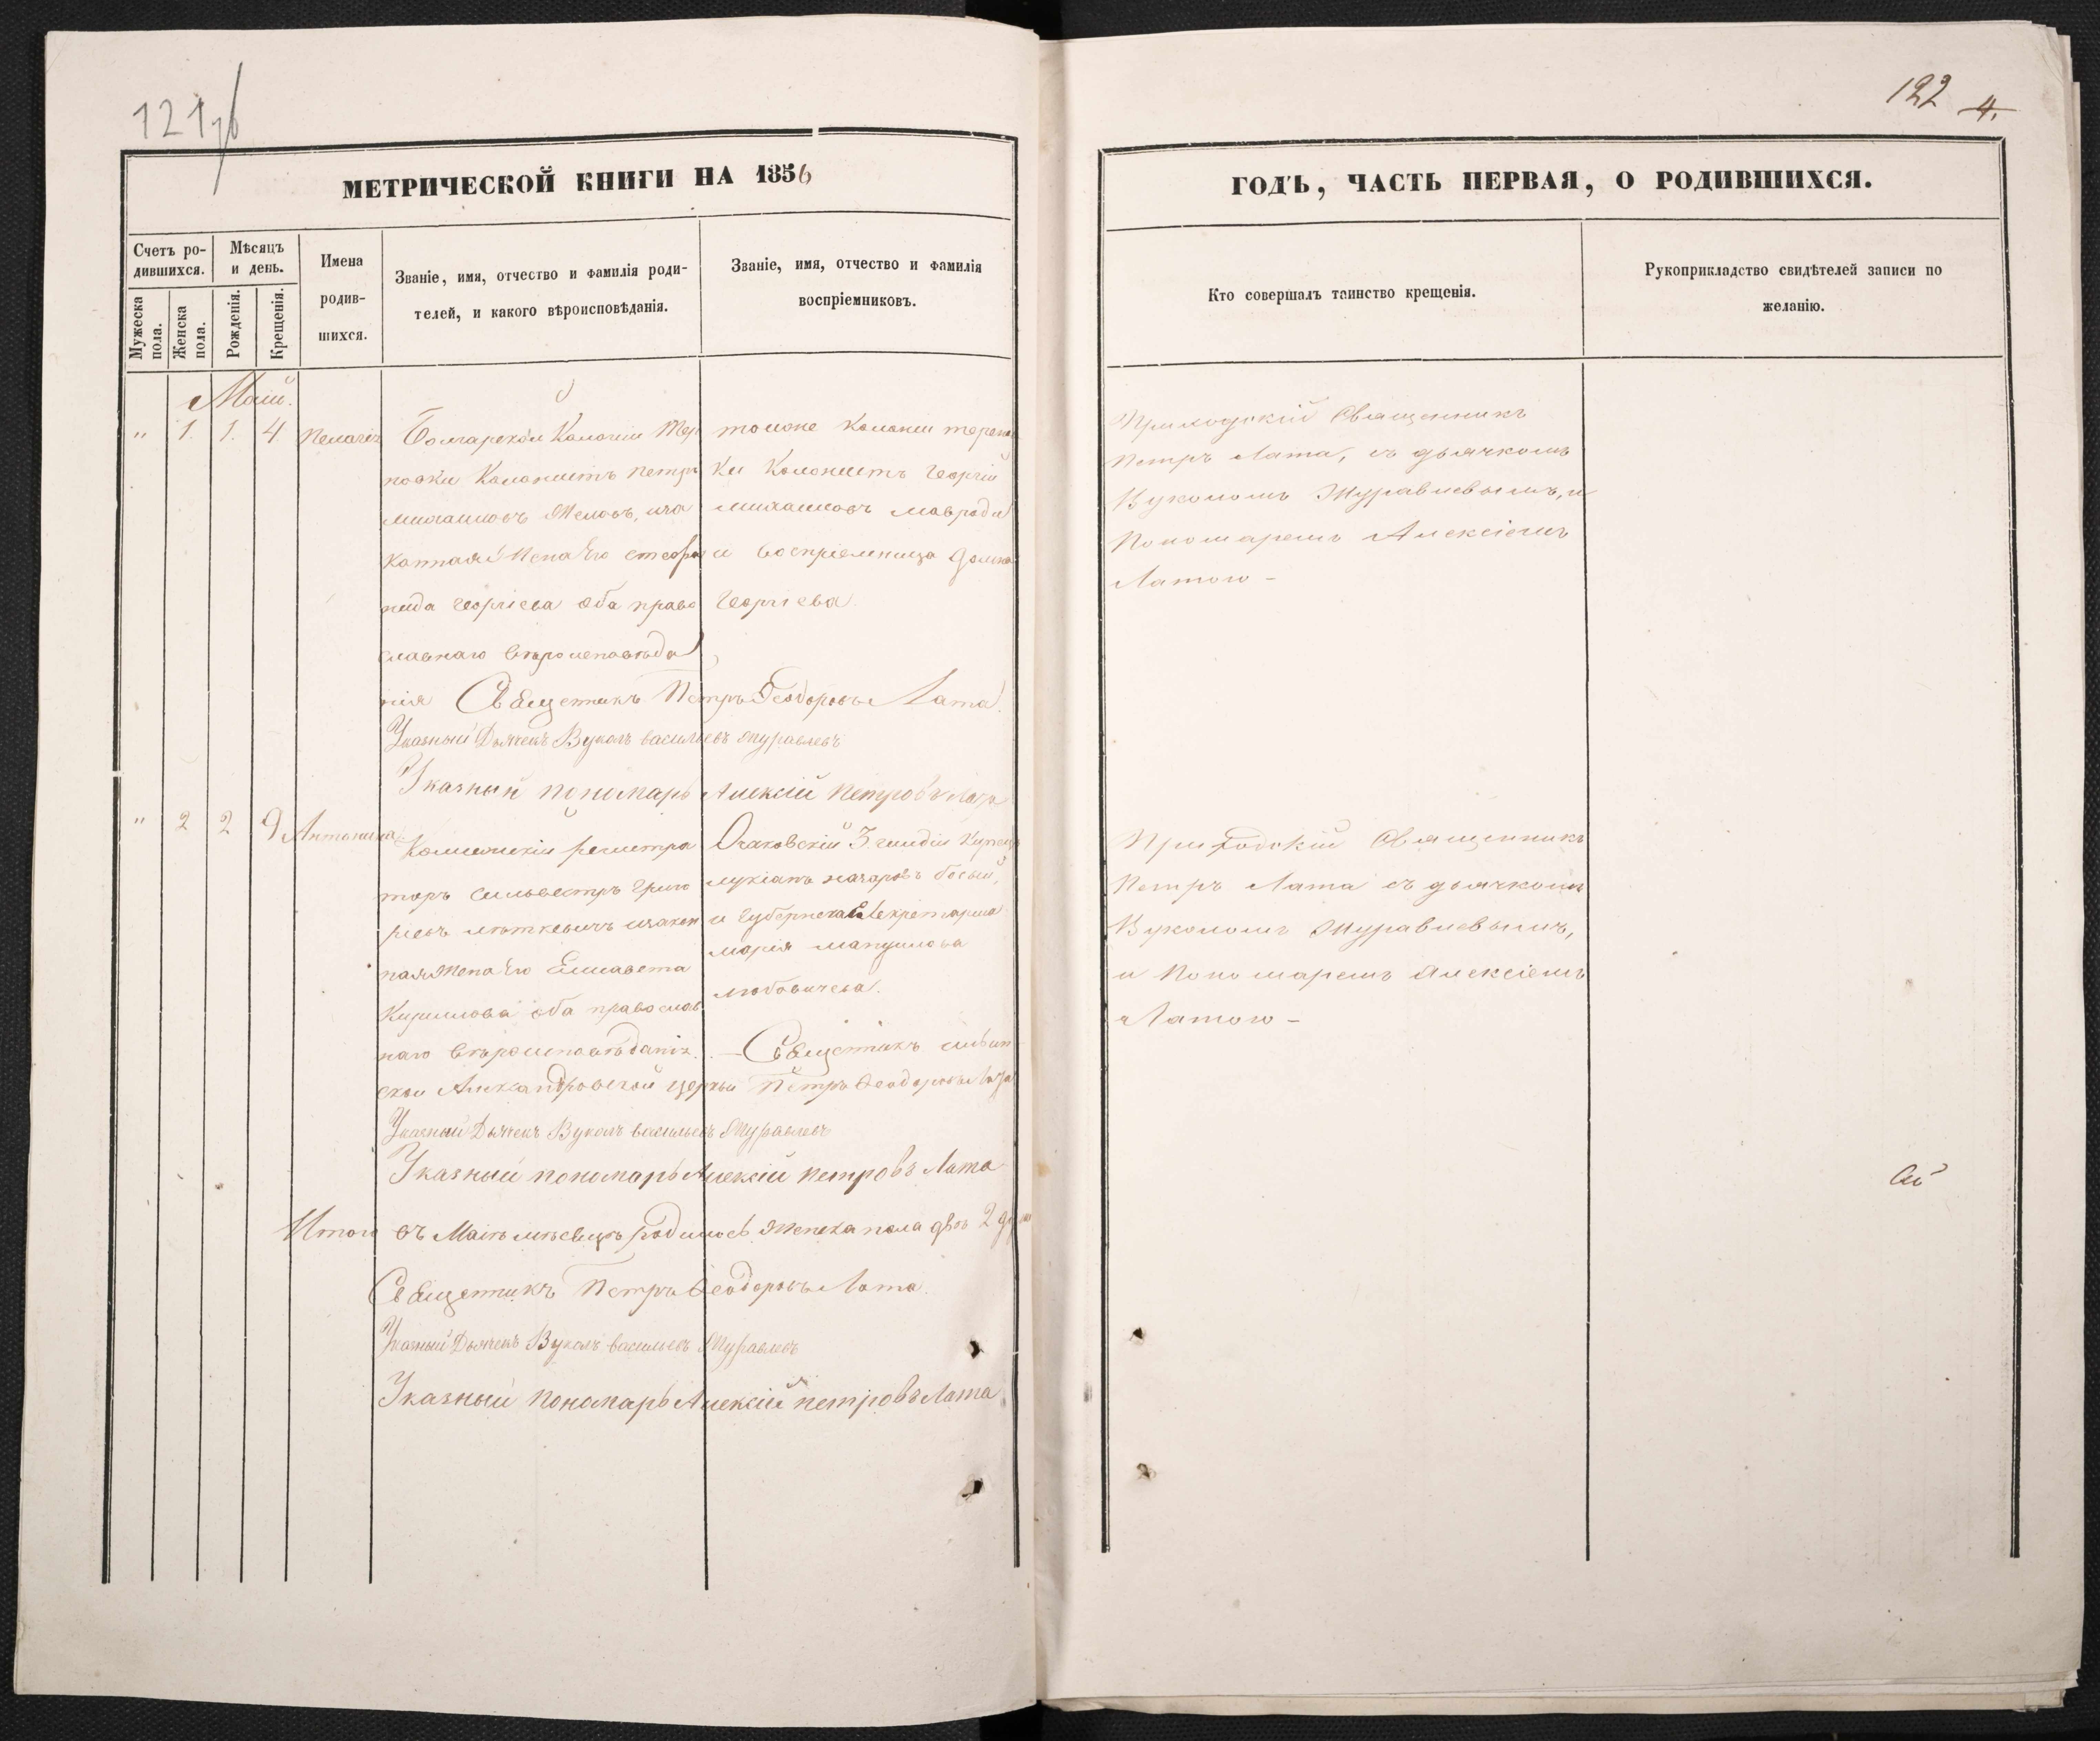 121
122 4.
МЕТРИЧЕСКОЙ КНИГИ НА 1856
ГОДЪ, ЧАСТЬ ПЕРВАЯ, О РОДИВШИХСЯ.
Счетъ ро-
дившихся.
Мужеска пола.
Женска пола.
Мѣсяцъ
и день.
Рожденія.
Крещенія.
Имена
родив-
шихся.
Званіе, имя, отчество и фамилія роди-
телей, и какого вѣроисповѣданія.
Званіе, имя, отчество и фамилія
воспріемниковъ.
Кто совершалъ таинство крещенія.
Рукоприкладство свидѣтелей записи по
желанію.
Маій.
" 1. 1. 4 Пелагія
Болгарской Колоніи Тер
новки Колонистъ Петръ
Михаиловъ зако
нная Жена Его Стефа
нида Георгіева оба право
славнаго вѣроисповѣда
нія Священникъ Петръ Ѳеодоровъ Лата.
Указный Дьячекъ Вуколъ Васильевъ Журавлевъ
Указный пономарь Алексій Петровъ Лата
тоиже Колоніи Терено
ки Колонистъ Георгій
Михаиловъ Мавроди
и воспріемница Домна
Георгіева.
Приходскій Священникъ
Петръ Лата, съ дьячкомъ
Вуколомъ Журавлевымъ, и
Пономаремъ Алексіемъ
Латою -
" 2 2 9 Антонина
Колежскій регистра
торъ Сильвестръ Григо
ріевъ закон
ная Жена Его Елисавета
Кирилова оба православ
наго вѣроисповѣданія. - Священникъ
ской Александровской церкви Петръ Ѳеодоровъ Лата
Указный Дьячекъ Вуколъ Васильевъ Журавлевъ
Указный пономарь Алексій Петровъ Лата
Очаковскій 3 гилдіи Купецъ
Лукіанъ Захаровъ
и Губернска Секретарша
Марія
Любовичева.
Приходскій Священникъ
Петръ Лата съ дьячкомъ
Вуколомъ Журавлевымъ,
и Пономаремъ Алексіемъ
Латою -
Итого въ Маіѣ мѣсяцѣ родилось Женска пола двѣ 2
Священникъ Петръ Ѳеодоровъ Лата.
Указный Дьячекъ Вуколъ Васильевъ Журавлевъ
Указный пономарь Алексій Петровъ Лата